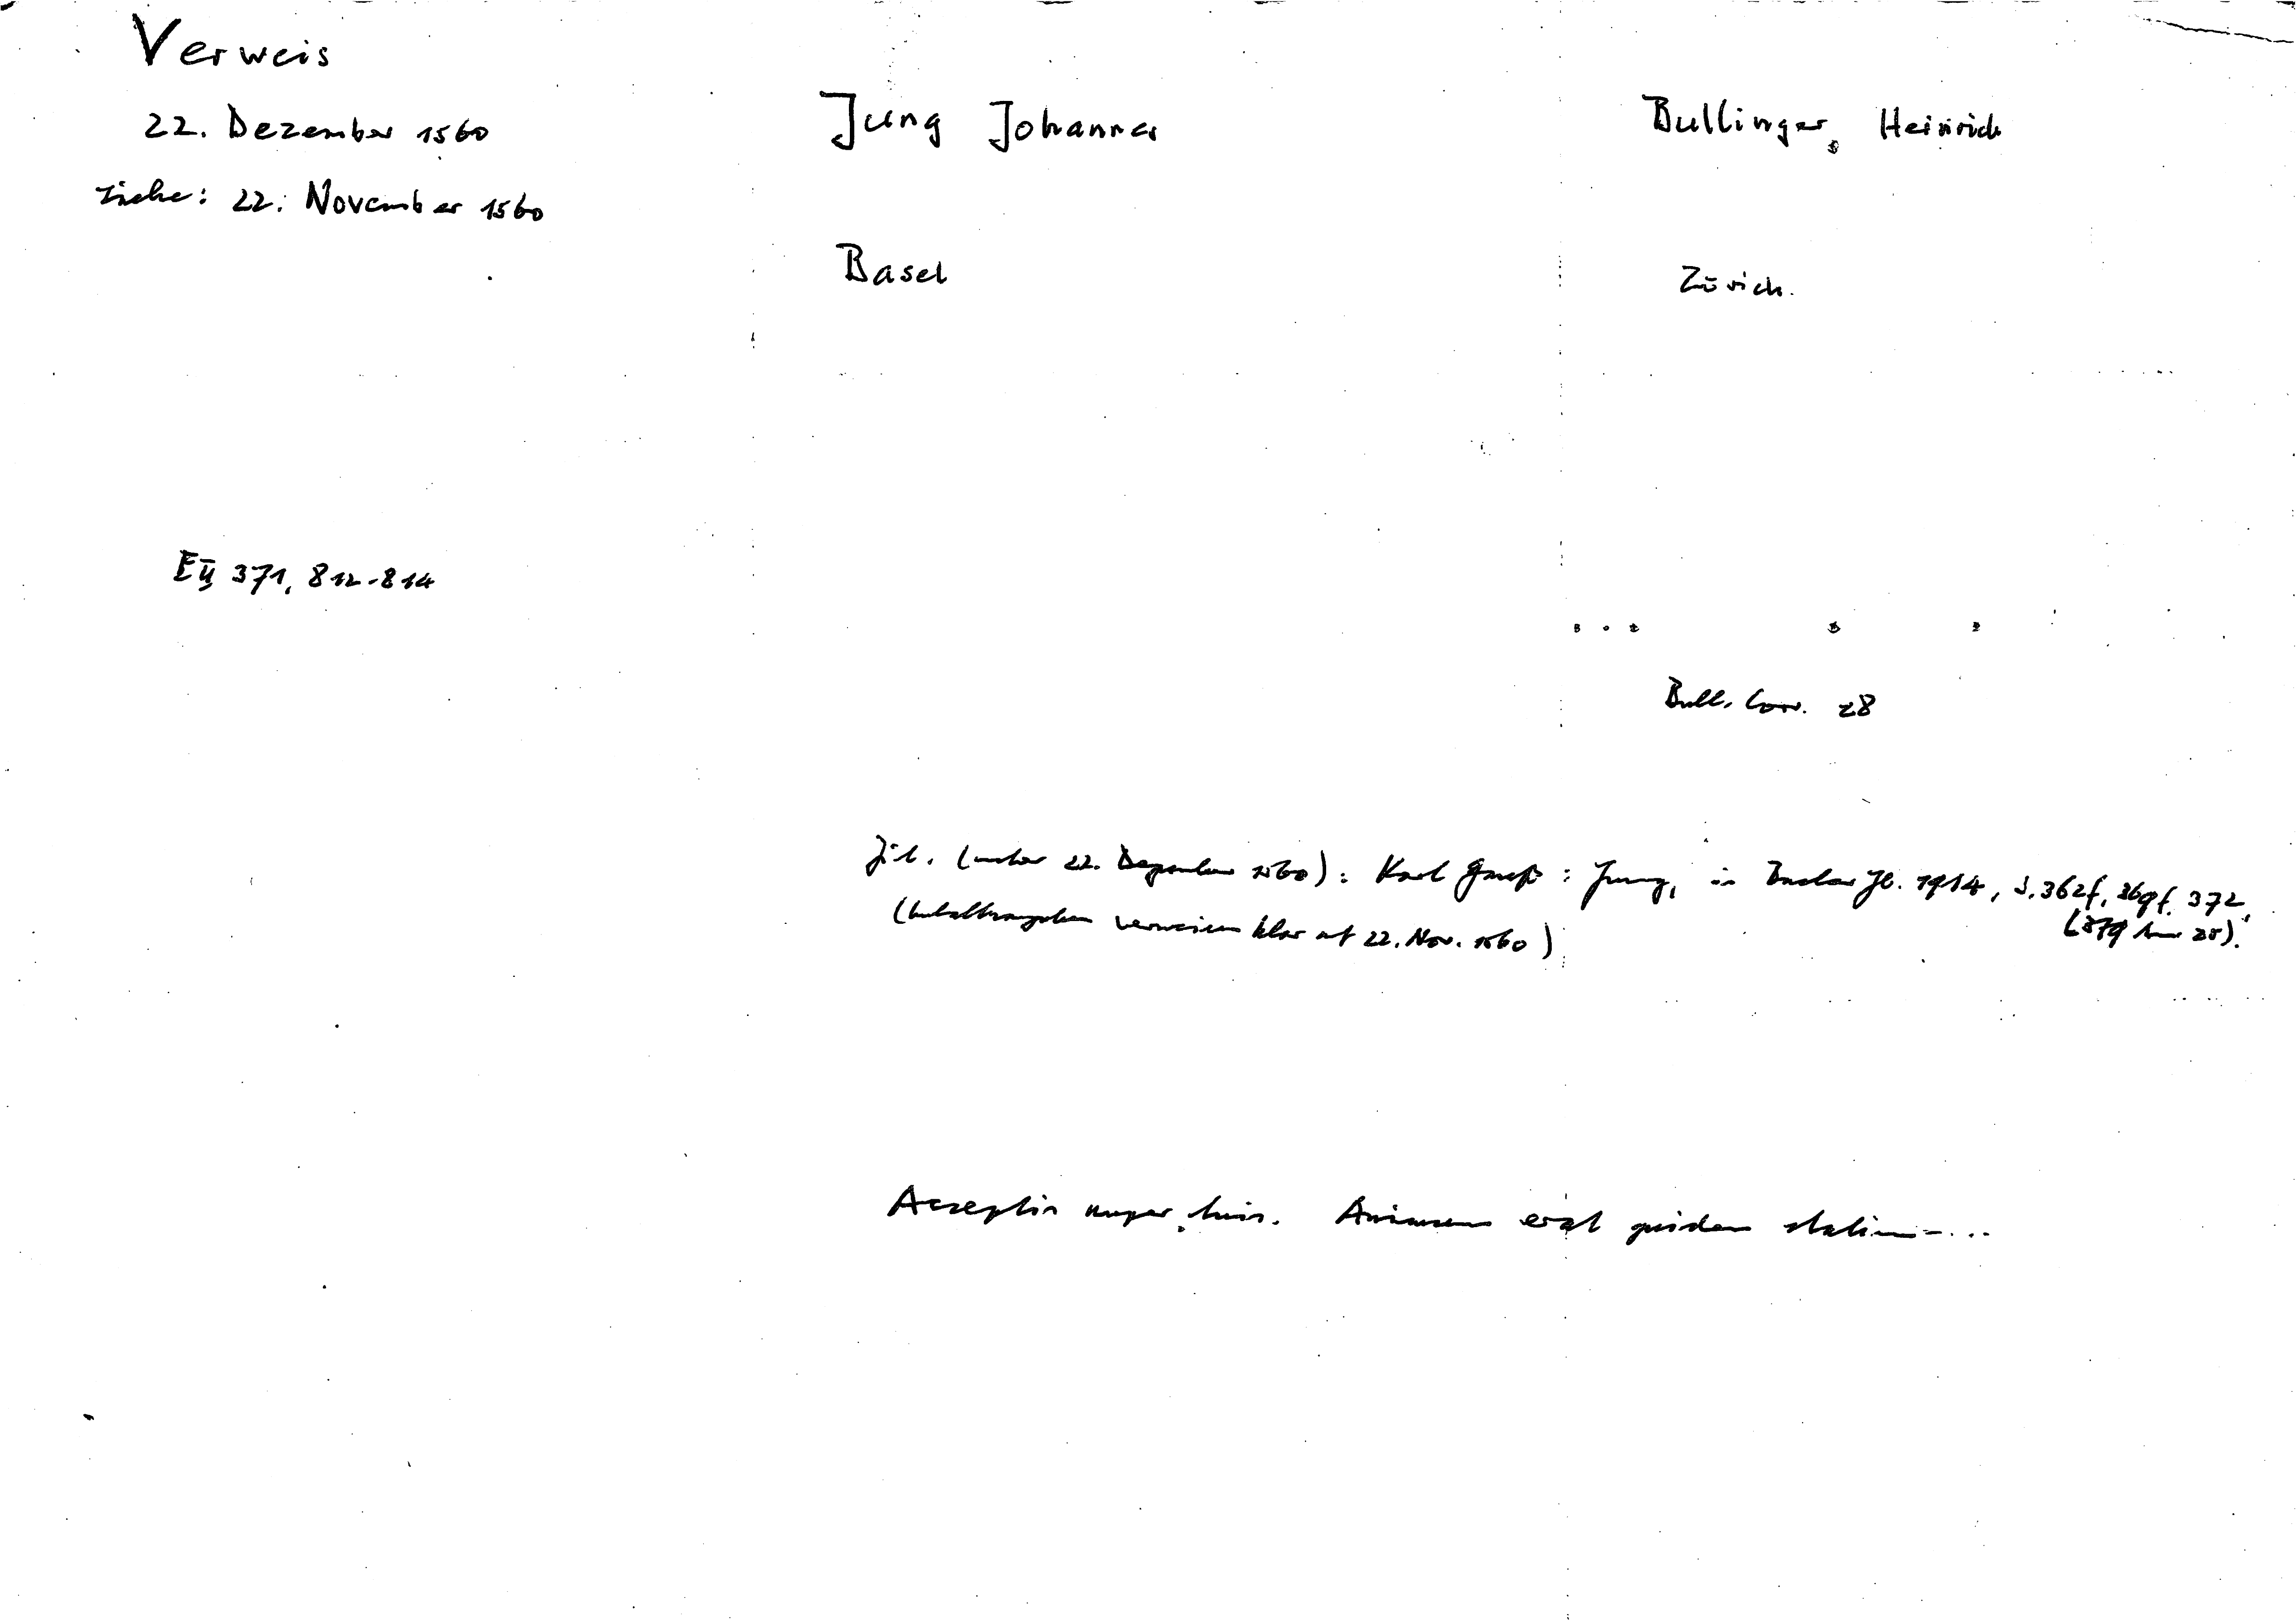 Verweis
22. Dezember 1560
siehe: 22. November 1560
Jung Johannes
Basel
Bullinger, Heinrich
Zürich.
E II 371, 812-814
Bull. Corr. 28
Zit. (unter 22. Dezember 1560): Karl Gauß: Jung, in Basler Jb. 1914, S. 362f, 369f. 372,
(379 Anm 28).
(Inhaltsangaben verweisen klar auf 22. Nov. 1560)
Acceptis nuper tuis. Animus erat quidem statim - ...